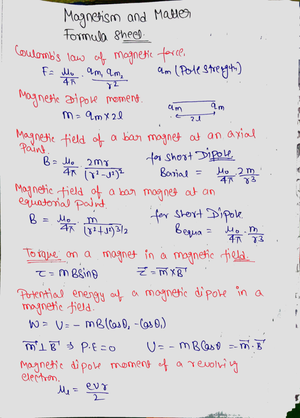 Magnetism and Matter
Formula sheet.
Coulomb's law of magnetic force.
F = μ₀/4π · qm₁ qm₂/r² qm (Pole strength)
Magnetic Dipole moment.
qm qm
m = qm × 2l 2l
Magnetic field of a bar magnet at an axial
Point.
B = μ₀/4π 2mr/(r²-l²)² for short Dipole
Baxial = μ₀/4π 2m/r3
Magnetic field of a bar magnet at an
equatorial point
B = μ₀/4π · m/(r²+l²)3/2 for short Dipole
Bequa = μ₀/4π · m/r3
Torque on a magnet in a magnetic field.
τ = mBsinθ τ⃗ = m⃗ × B⃗
Potential energy of a magnetic dipole in a
magnetic field.
W = U = - mB(cosθ₂ - cosθ₁)
m⃗ ⊥ B⃗ ⇒ P.E = 0 U = - mBcosθ = m⃗ · B⃗
Magnetic dipole moment of a revolving
electron.
μ₁ = evr/2